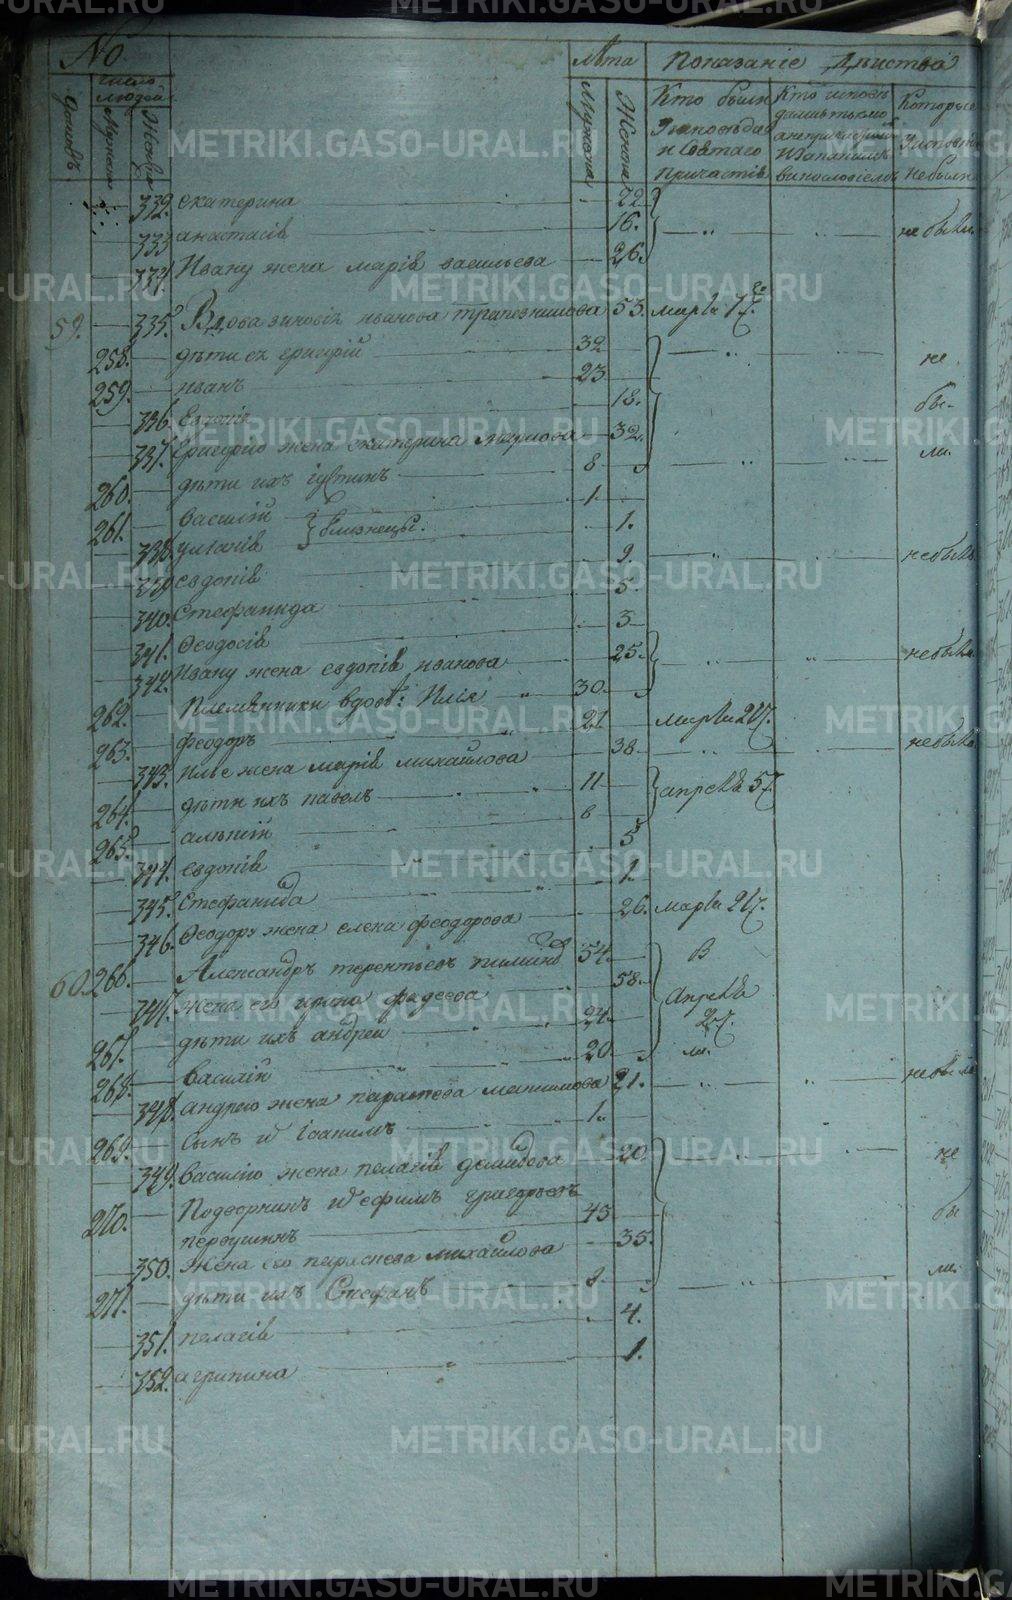 № Лѣта Показаніе Дѣиства
Домовъ
число людей
Мужеска
Женска
Мужеска
Женска
Кто были у исповѣда и Святаго причастія
Кто исповѣдались токмо а не причастил и за какимъ винословіемъ
Которые у исповѣди не были
332. екатерина 22
333 анастасія 16. не были.
334. Ивану жена марія васильева 26.
59. 335. Вдова зиновія иванова трапезникова 53. марта 17.
258. дѣти ея григорій 32 не
259. иванъ 23 бы-
336. Евдокія 18. ли.
337. Григорію жена екатерина 32.
260. дѣти ихъ іустинъ 8
261. василій 1 близнецы.
338. уліанія 1.
339 евдокія 9. не были
340. Стефанида 5.
341. Ѳеодосія 3
342. Ивану жена евдокія иванова 25. не были
262. Племянники вдов: Илія 30.
263. феодоръ 21 марта 27.
343. Илье жена марія михайлова 38. не были
264. дѣти ихъ павелъ 11 апреля 57.
265. 6
344. евдокія 5
345. Стефанида 1.
346. Ѳеодору жена елена феодорова 26. марта 27.
60. 266. Александръ терентьевъ 54. В
347. жена его ирина фадеева 58. Апреля
267. дѣти ихъ андреи 24 27.
268. Василіи 20
348. андрею жена параскева 21. не были
269. сынъ и іоакимъ 1.
349. василію жена пелагія демидова 20 не
270. Подворникъ ефимъ григорьевъ 43 бы
первушинъ
350. Жена его параскева михайлова 35. ли.
271. дѣти ихъ Стефанъ
351. пелагія 4.
352. агрипина 1.
METRIKI.GASO-URAL.RU